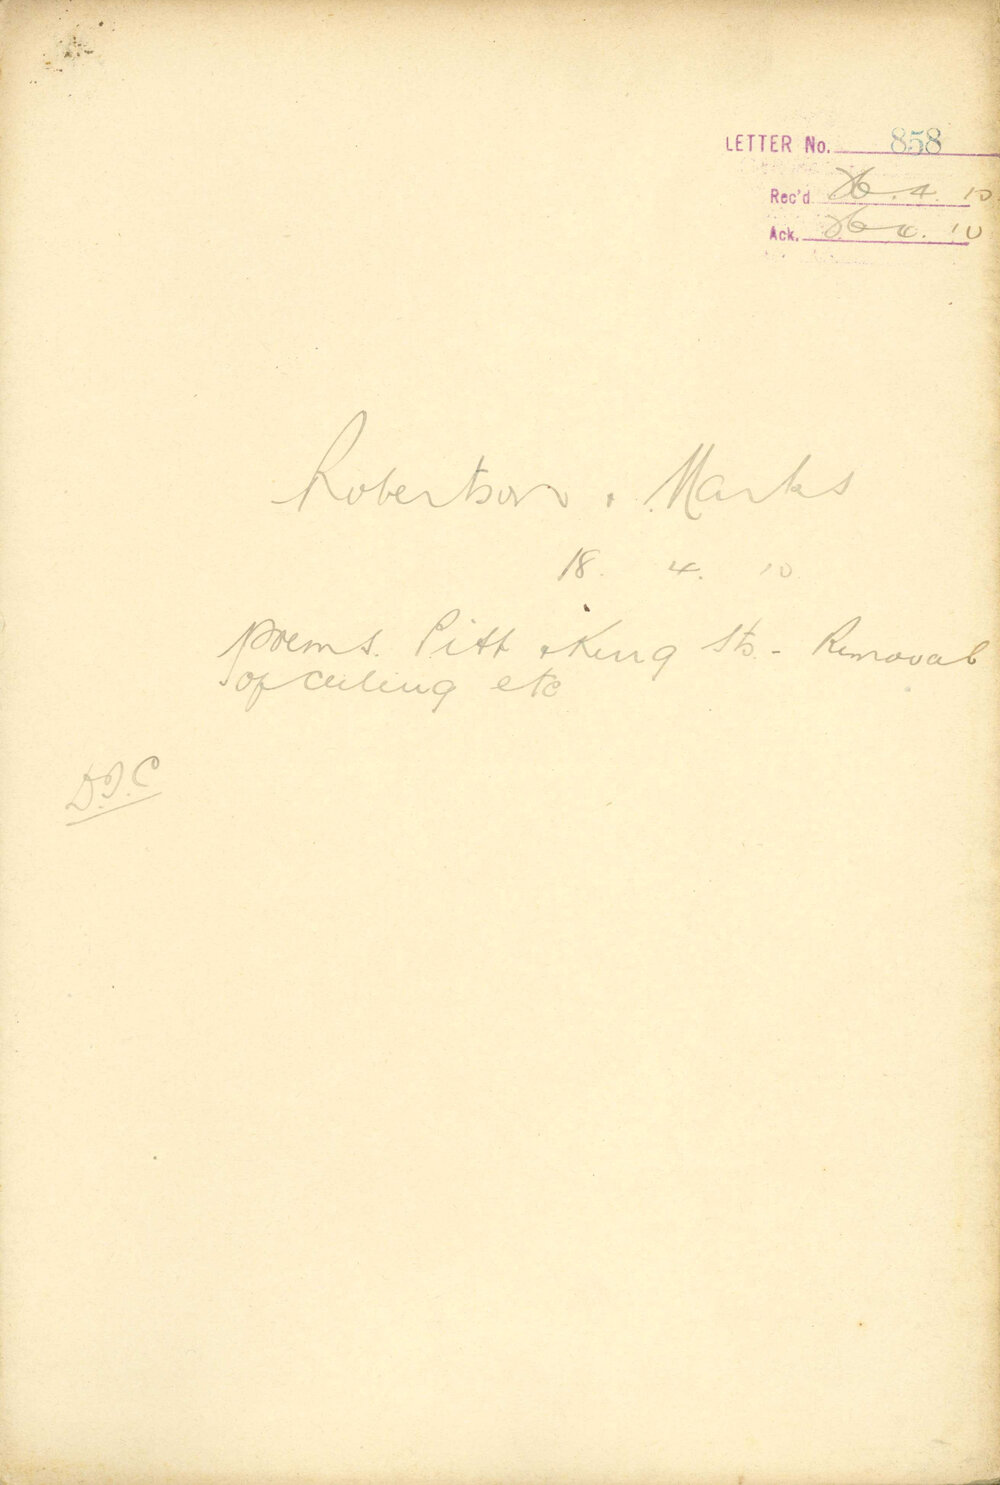 LETTER No. 858
Rec'd 26. 4. 10
Ack. 26. 4. 10
Robertson & Marks
18. 4. 10
prems. Pitt & King Sts. - Removal
of ceiling etc
D.J.C